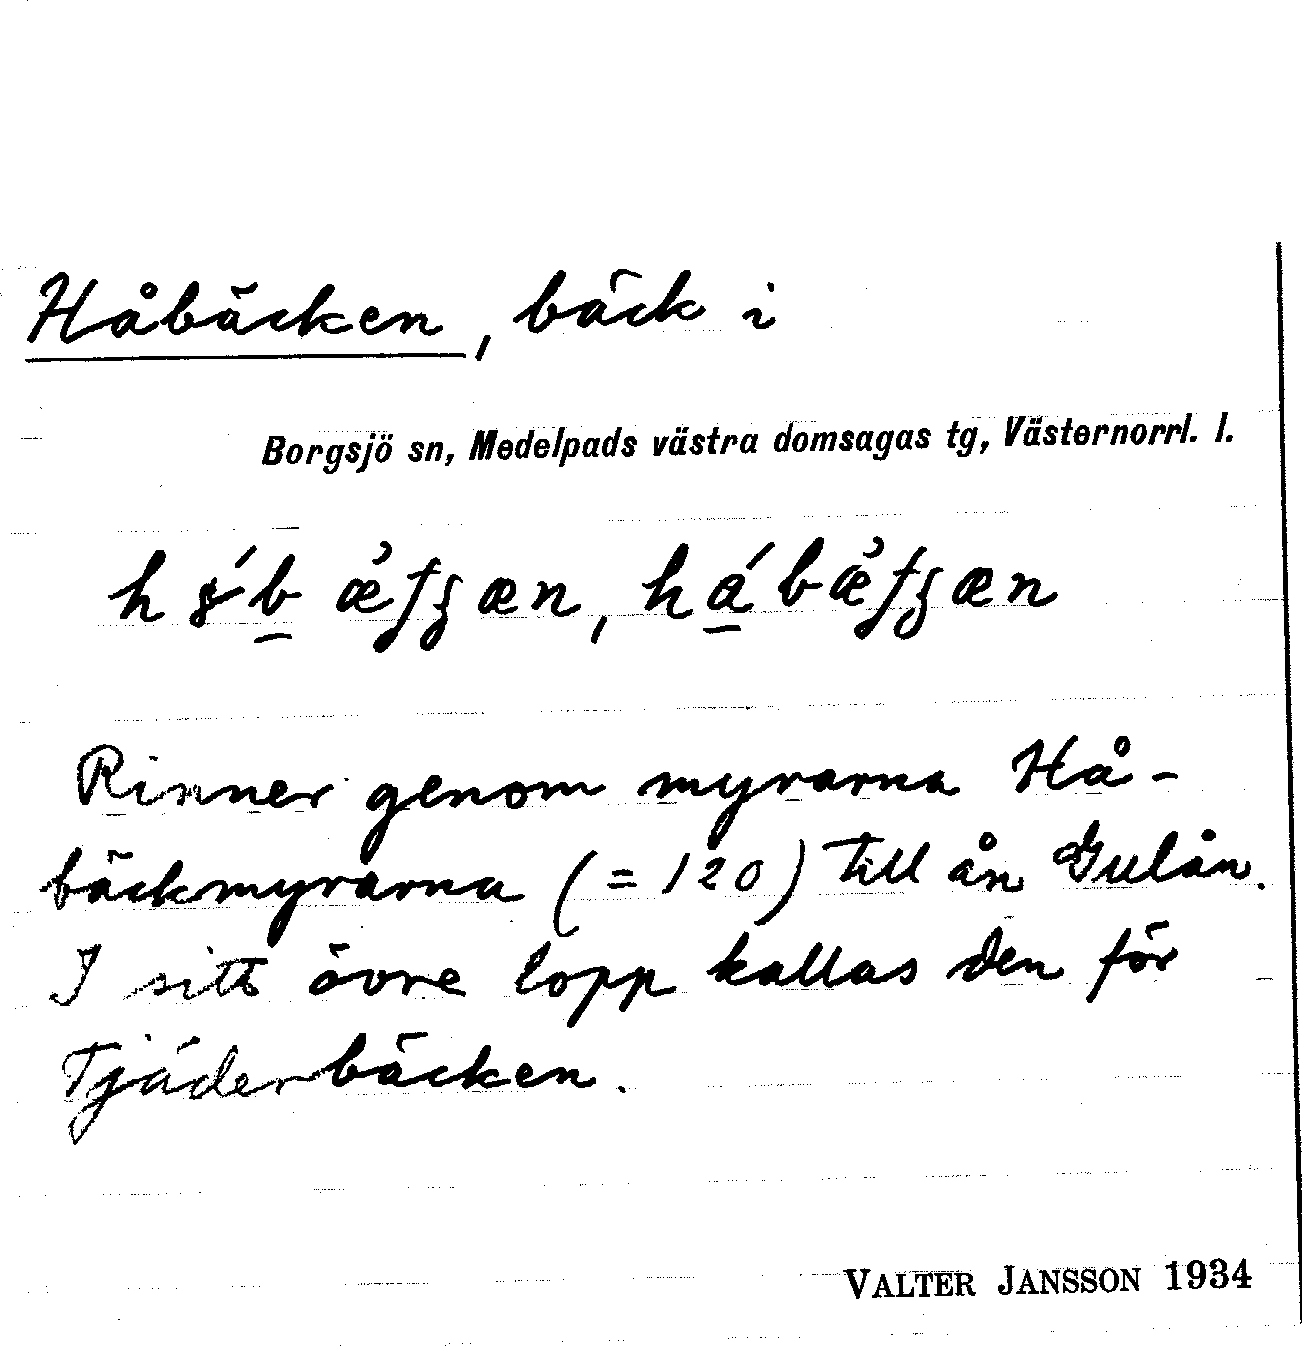 Håbäcken, bäck i
Borgsjö sn, Medelpads västra domsagas tg, Västernorrl. l.
Rinner genom myrarna Hå-
bäckmyrarna (= 120) till ån Gulån.
I sitt övre lopp kallas den för
Tjäderbäcken.
VALTER JANSSON 1934